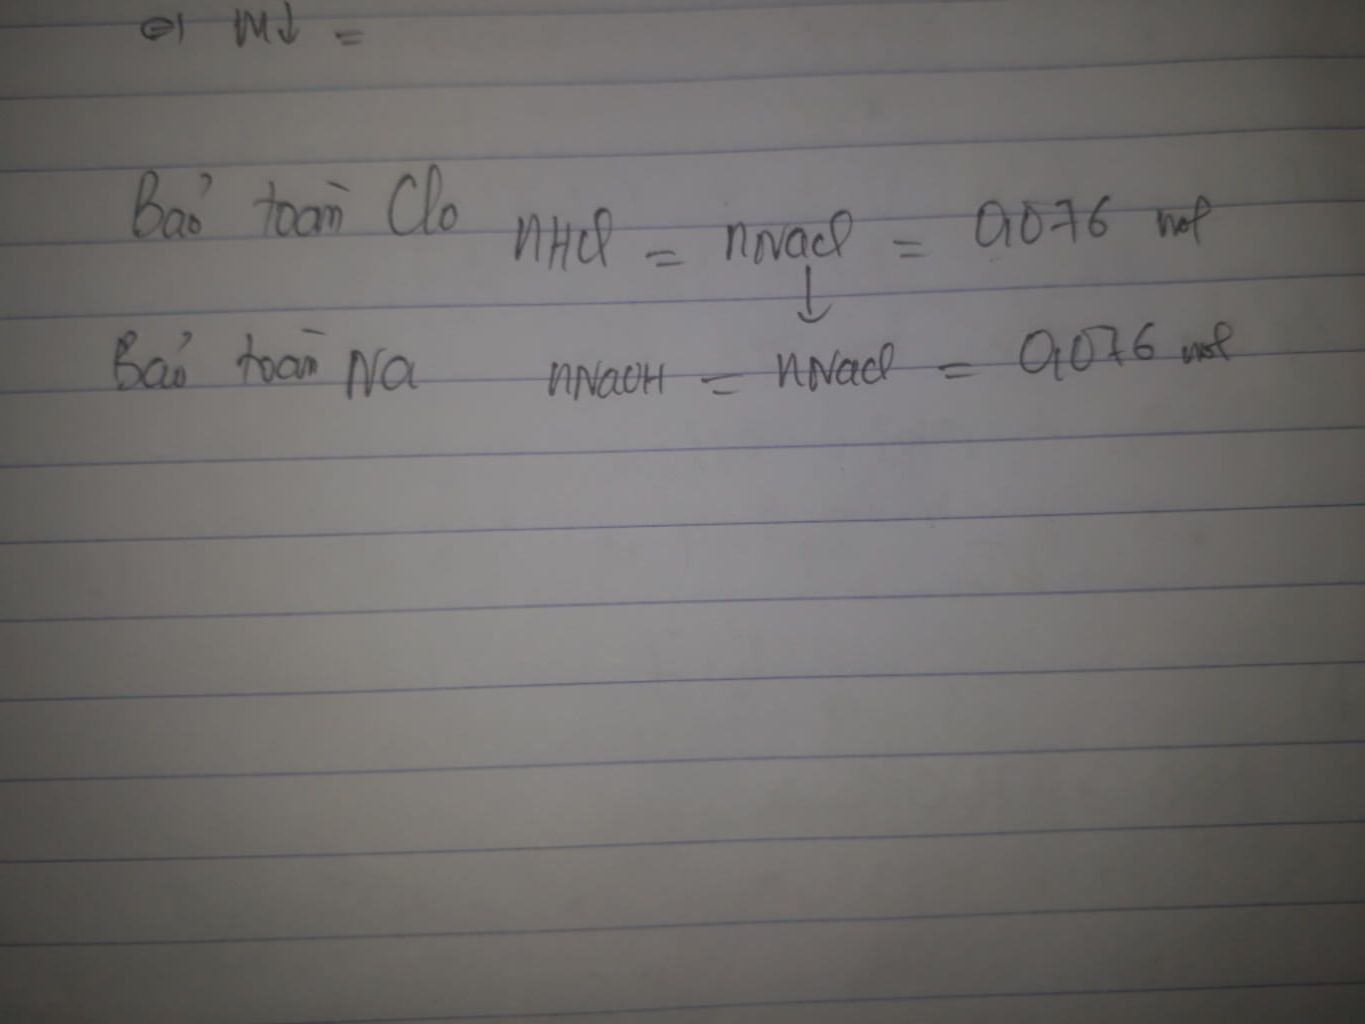 ⇔ m↓ =
Bảo toàn Clo nHCl = nNaCl = 0,076 mol
↓
Bảo toàn Na nNaOH = nNaCl = 0,076 mol